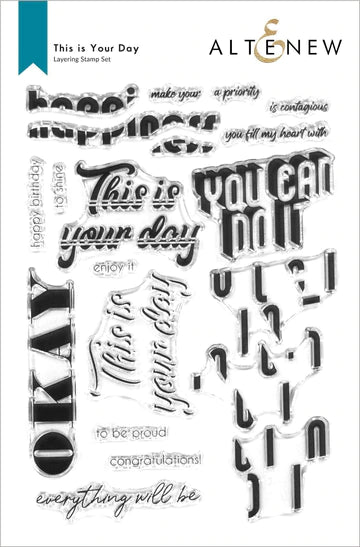 This is Your Day
Layering Stamp Set
ALTENEW
happiness
make your
a priority
is contagious
you fill my heart with
happy birthday
to shine
This is
your day
YOU CAN
DO IT
enjoy it
OKAY
This is
your day
to be proud
congratulations!
everything will be